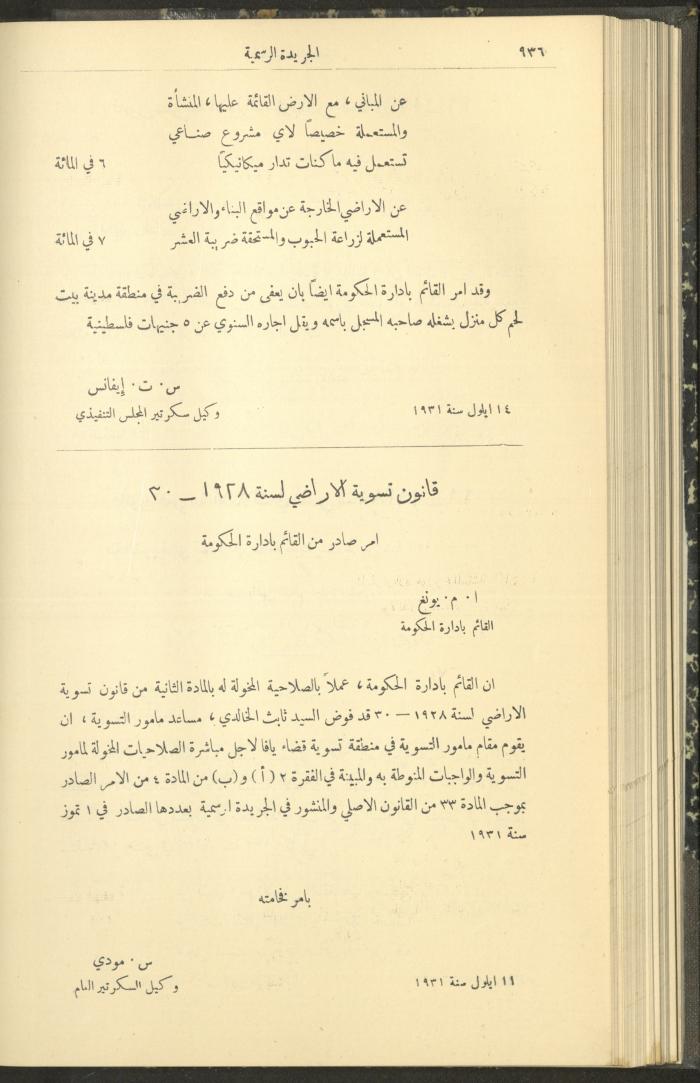 الجريدة الرسمية ٩٣٦
عن المباني ، مع الارض القائمة عليها ، المنشأة
والمستعملة خصيصاً لاي مشروع صناعي
تستعمل فيه ماكنات تدار ميكانيكيًا ٦ في المائة
عن الاراضي الخارجة عن مواقع البناء والاراضي
المستعملة لزراعة الحبوب والمستحقة ضريبة العشر ٧ في المائة
وقد امر القائم بادارة الحكومة ايضاً بان يعفى من دفع الضريبة في منطقة مدينة بيت
لحم كل منزل يشغله صاحبه المسجل باسمه ويقل اجاره السنوي عن ٥ جنيهات فلسطينية
س . ت . إيفانس
١٤ ايلول سنة ١٩٣١ وكيل سكرتير المجلس التنفيذي
قانون تسوية الاراضي لسنة ١٩٢٨ ــ ٣٠
امر صادر من القائم بادارة الحكومة
ا . م . يونغ
القائم بادارة الحكومة
ان القائم بادارة الحكومة ، عملاً بالصلاحية المخولة له بالمادة الثانية من قانون تسوية
الاراضي لسنة ١٩٢٨ — ٣٠ قد فوض السيد ثابت الخالدي ، مساعد مامور التسوية ، ان
يقوم مقام مامور التسوية في منطقة تسوية قضاء يافا لاجل مباشرة الصلاحيات المخولة لمامور
التسوية والواجبات المنوطة به والمبينة في الفقرة ٢ ( أ ) و (ب) من المادة ٤ من الامر الصادر
بموجب المادة ٣٣ من القانون الاصلي والمنشور في الجريدة ارسمية بعددها الصادر في ١ تموز
سنة ١٩٣١
بامر فخامته
س . مودي
١١ ايلول سنة ١٩٣١ وكيل السكرتير العام